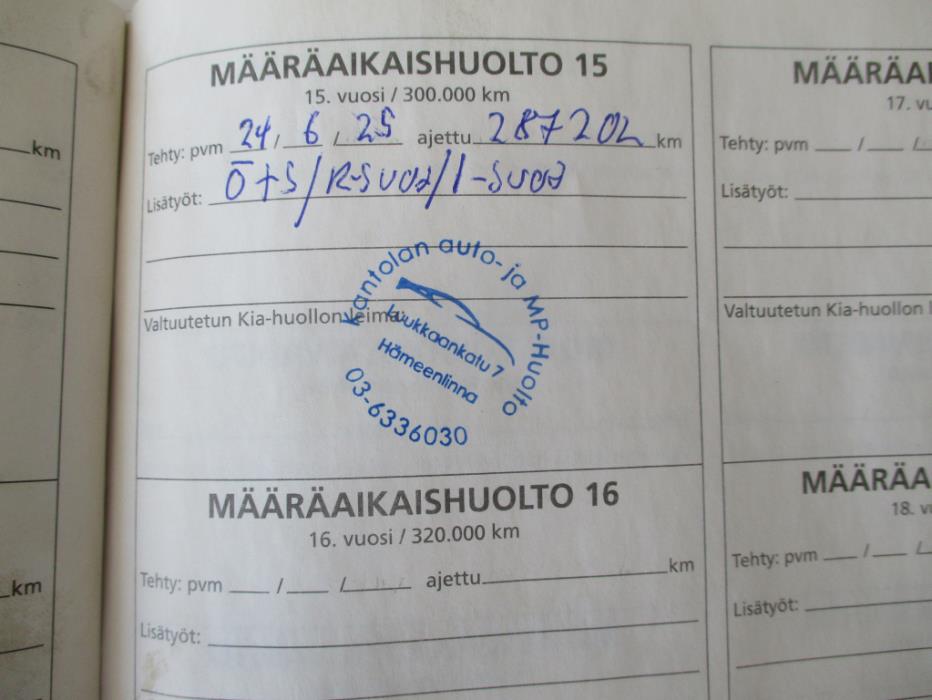 km
km
MÄÄRÄAIKAISHUOLTO 15
15. vuosi / 300.000 km
Tehty: pvm 24 / 6 / 25 ajettu 287202 km
Lisätyöt: Ö+S/R-SUOD/I-SUOD
Valtuutetun Kia-huollon leima:
Kantolan auto- ja MP-Huolto
Luukkaankatu 7
Hämeenlinna
03-6336030
MÄÄRÄAIKAISHUOLTO 16
16. vuosi / 320.000 km
Tehty: pvm / / ajettu km
Lisätyöt:
MÄÄRÄAI
17. v
Tehty: pvm / /
Lisätyöt:
Valtuutetun Kia-huollon l
MÄÄRÄA
18. v
Tehty: pvm / /
Lisätyöt: